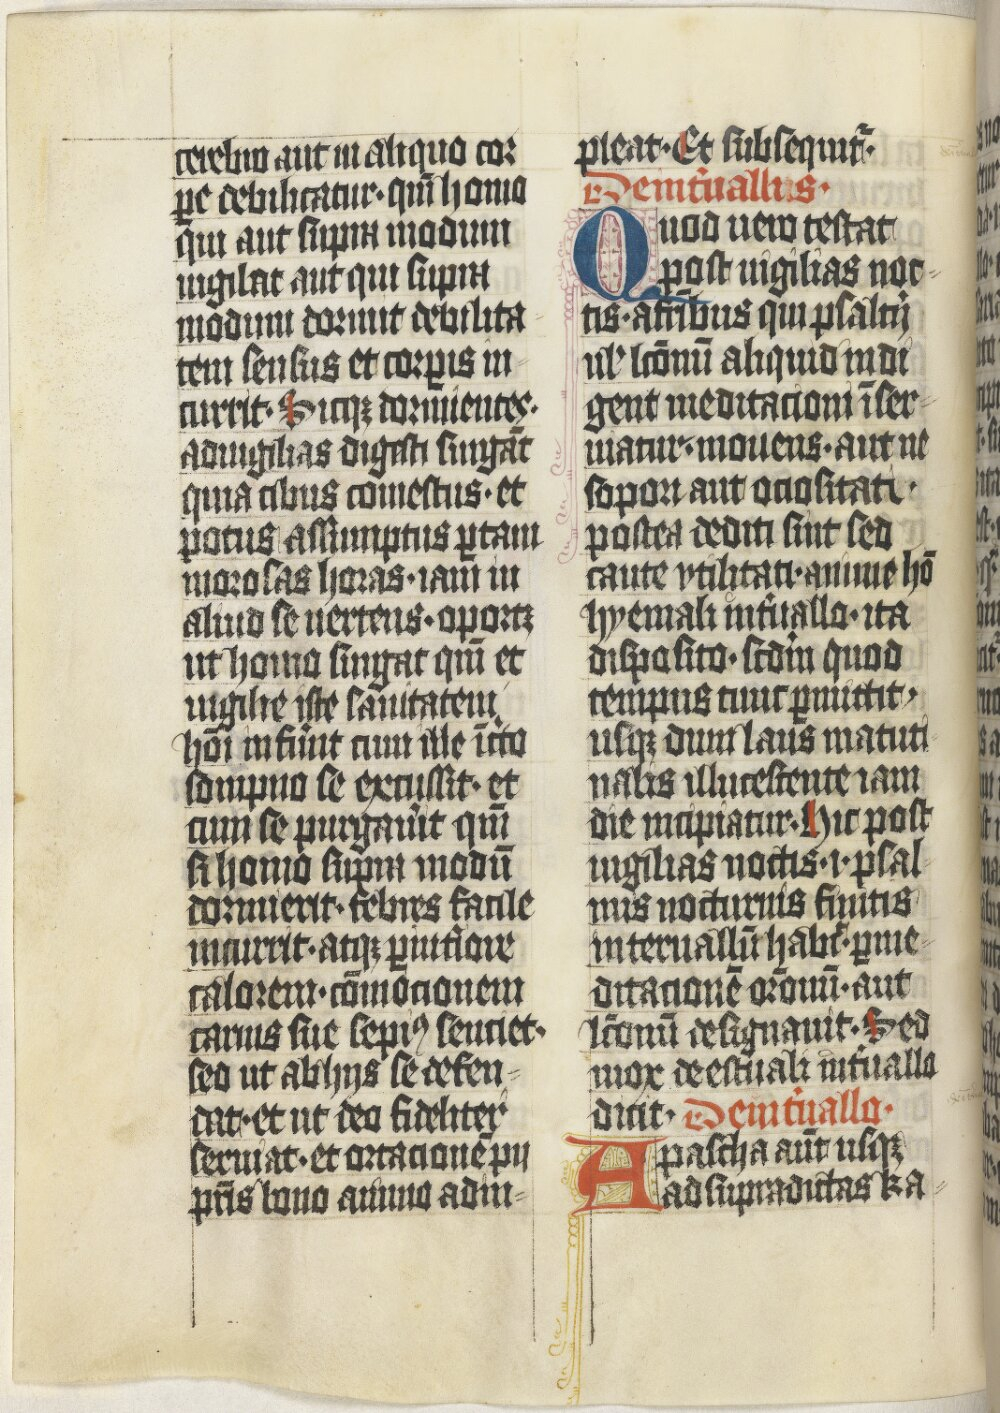 cerebro aut in aliquo cor
ꝑe debilitatur· qm̄ homo
qui aut supra modum
uigilat aut qui supra
modum dormit debilita
tem sensus et corꝑis in
currit· Sicqꝫ dormientes·
ad uigilias digesti surgāt
quia cibus comestus· et
potus assumptus ꝑ tam
morosas horas· iam in
aliud se uertens· oportꝫ
ut homo surgat qm̄ et
uigilie iste sanitatem
hōi inferūt cum ille iͣcto
sompno se excussit· et
cum se purgauit qm̄
si homo supra modū
dormierit· febres facile
incurrit· atqꝫ ꝑ interiore
calorem· cōmocionem
carnis sue sepiꝰ senciet·
sed ut ab hijs se defen-
dat· et ut deo fideliter
seruiat· et ortacionē pij
pr̄is bono animo adim-
pleat· Et subsequitr̄·
De intuallus·
Quod uero testat
post uigilias noc-
tis· a fr̄ibus qui psaltij
ul' lc̄onū aliquid indi
gent meditacioni īser-
uiatur· mouens· aut ne
sopori aut ociositati·
postea dediti sint sed
caute vtilitati· anime hō
hyemali int'uallo· ita
disposito· scdm quod
tempus tunc ꝑmittit,
usqꝫ dum laus matuti
nalis illucescente iam
die incipiatur· Hic post
uigilias noctis· i· psal-
mis nocturnis finitis
interuallū habr̄i ꝑ me-
ditacionē or̄onū· aut
lc̄onū designauit· Sed
mox de estiuali int'uallo
dicit· De int'uallo·
A pascha aut̄ usqꝫ
ad supradictas ka-